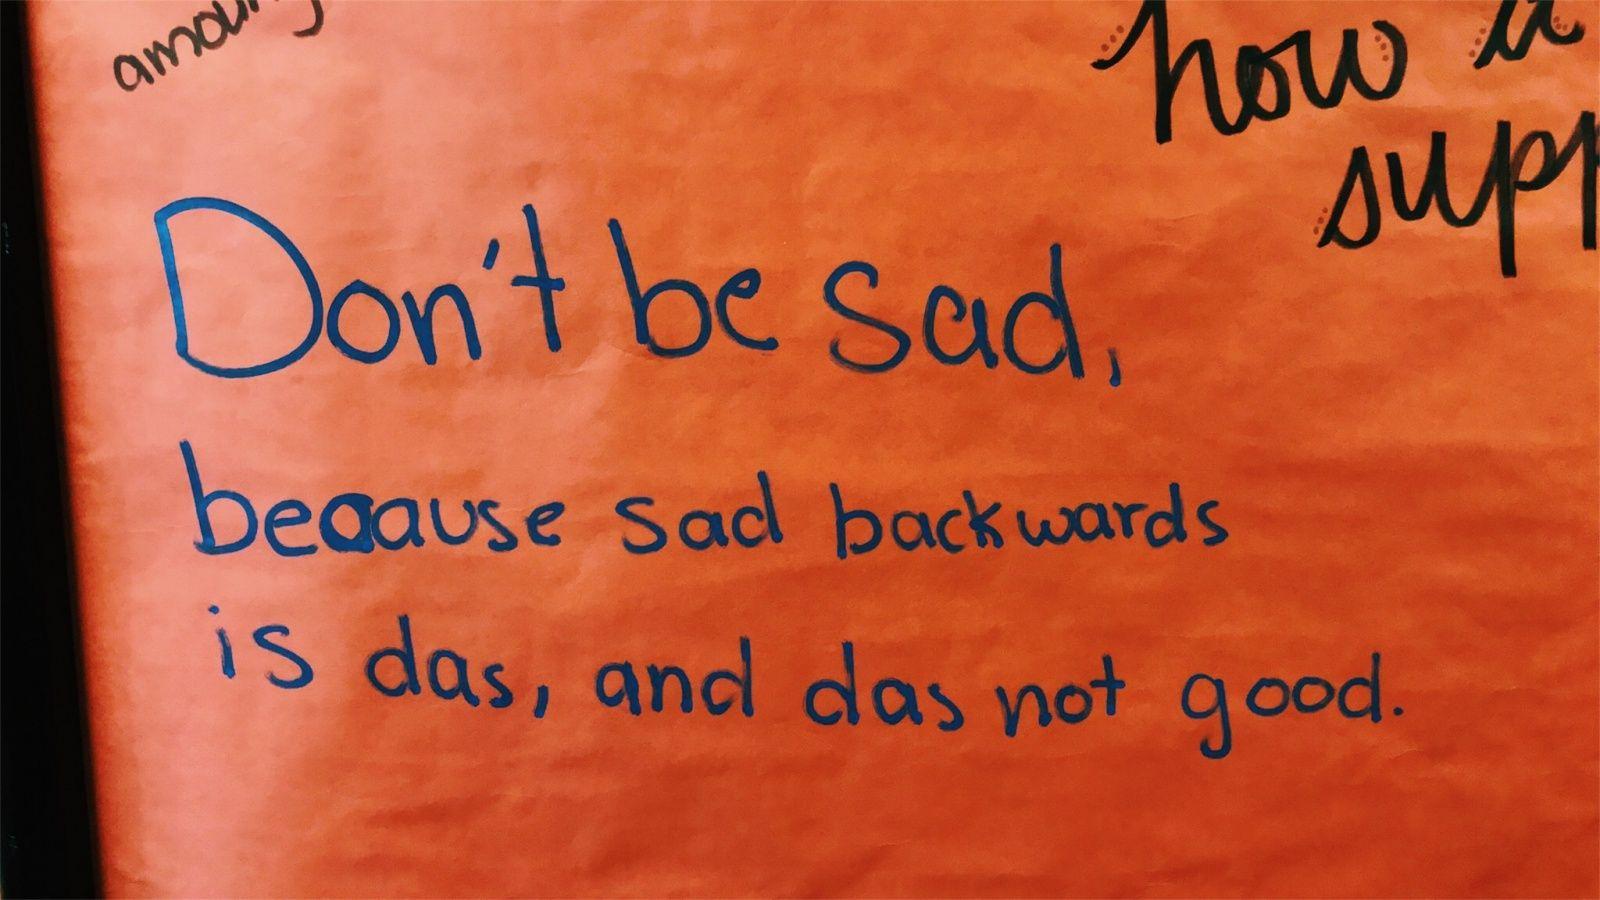 how a
Don't be sad,
because sad backwards
is das, and das not good.